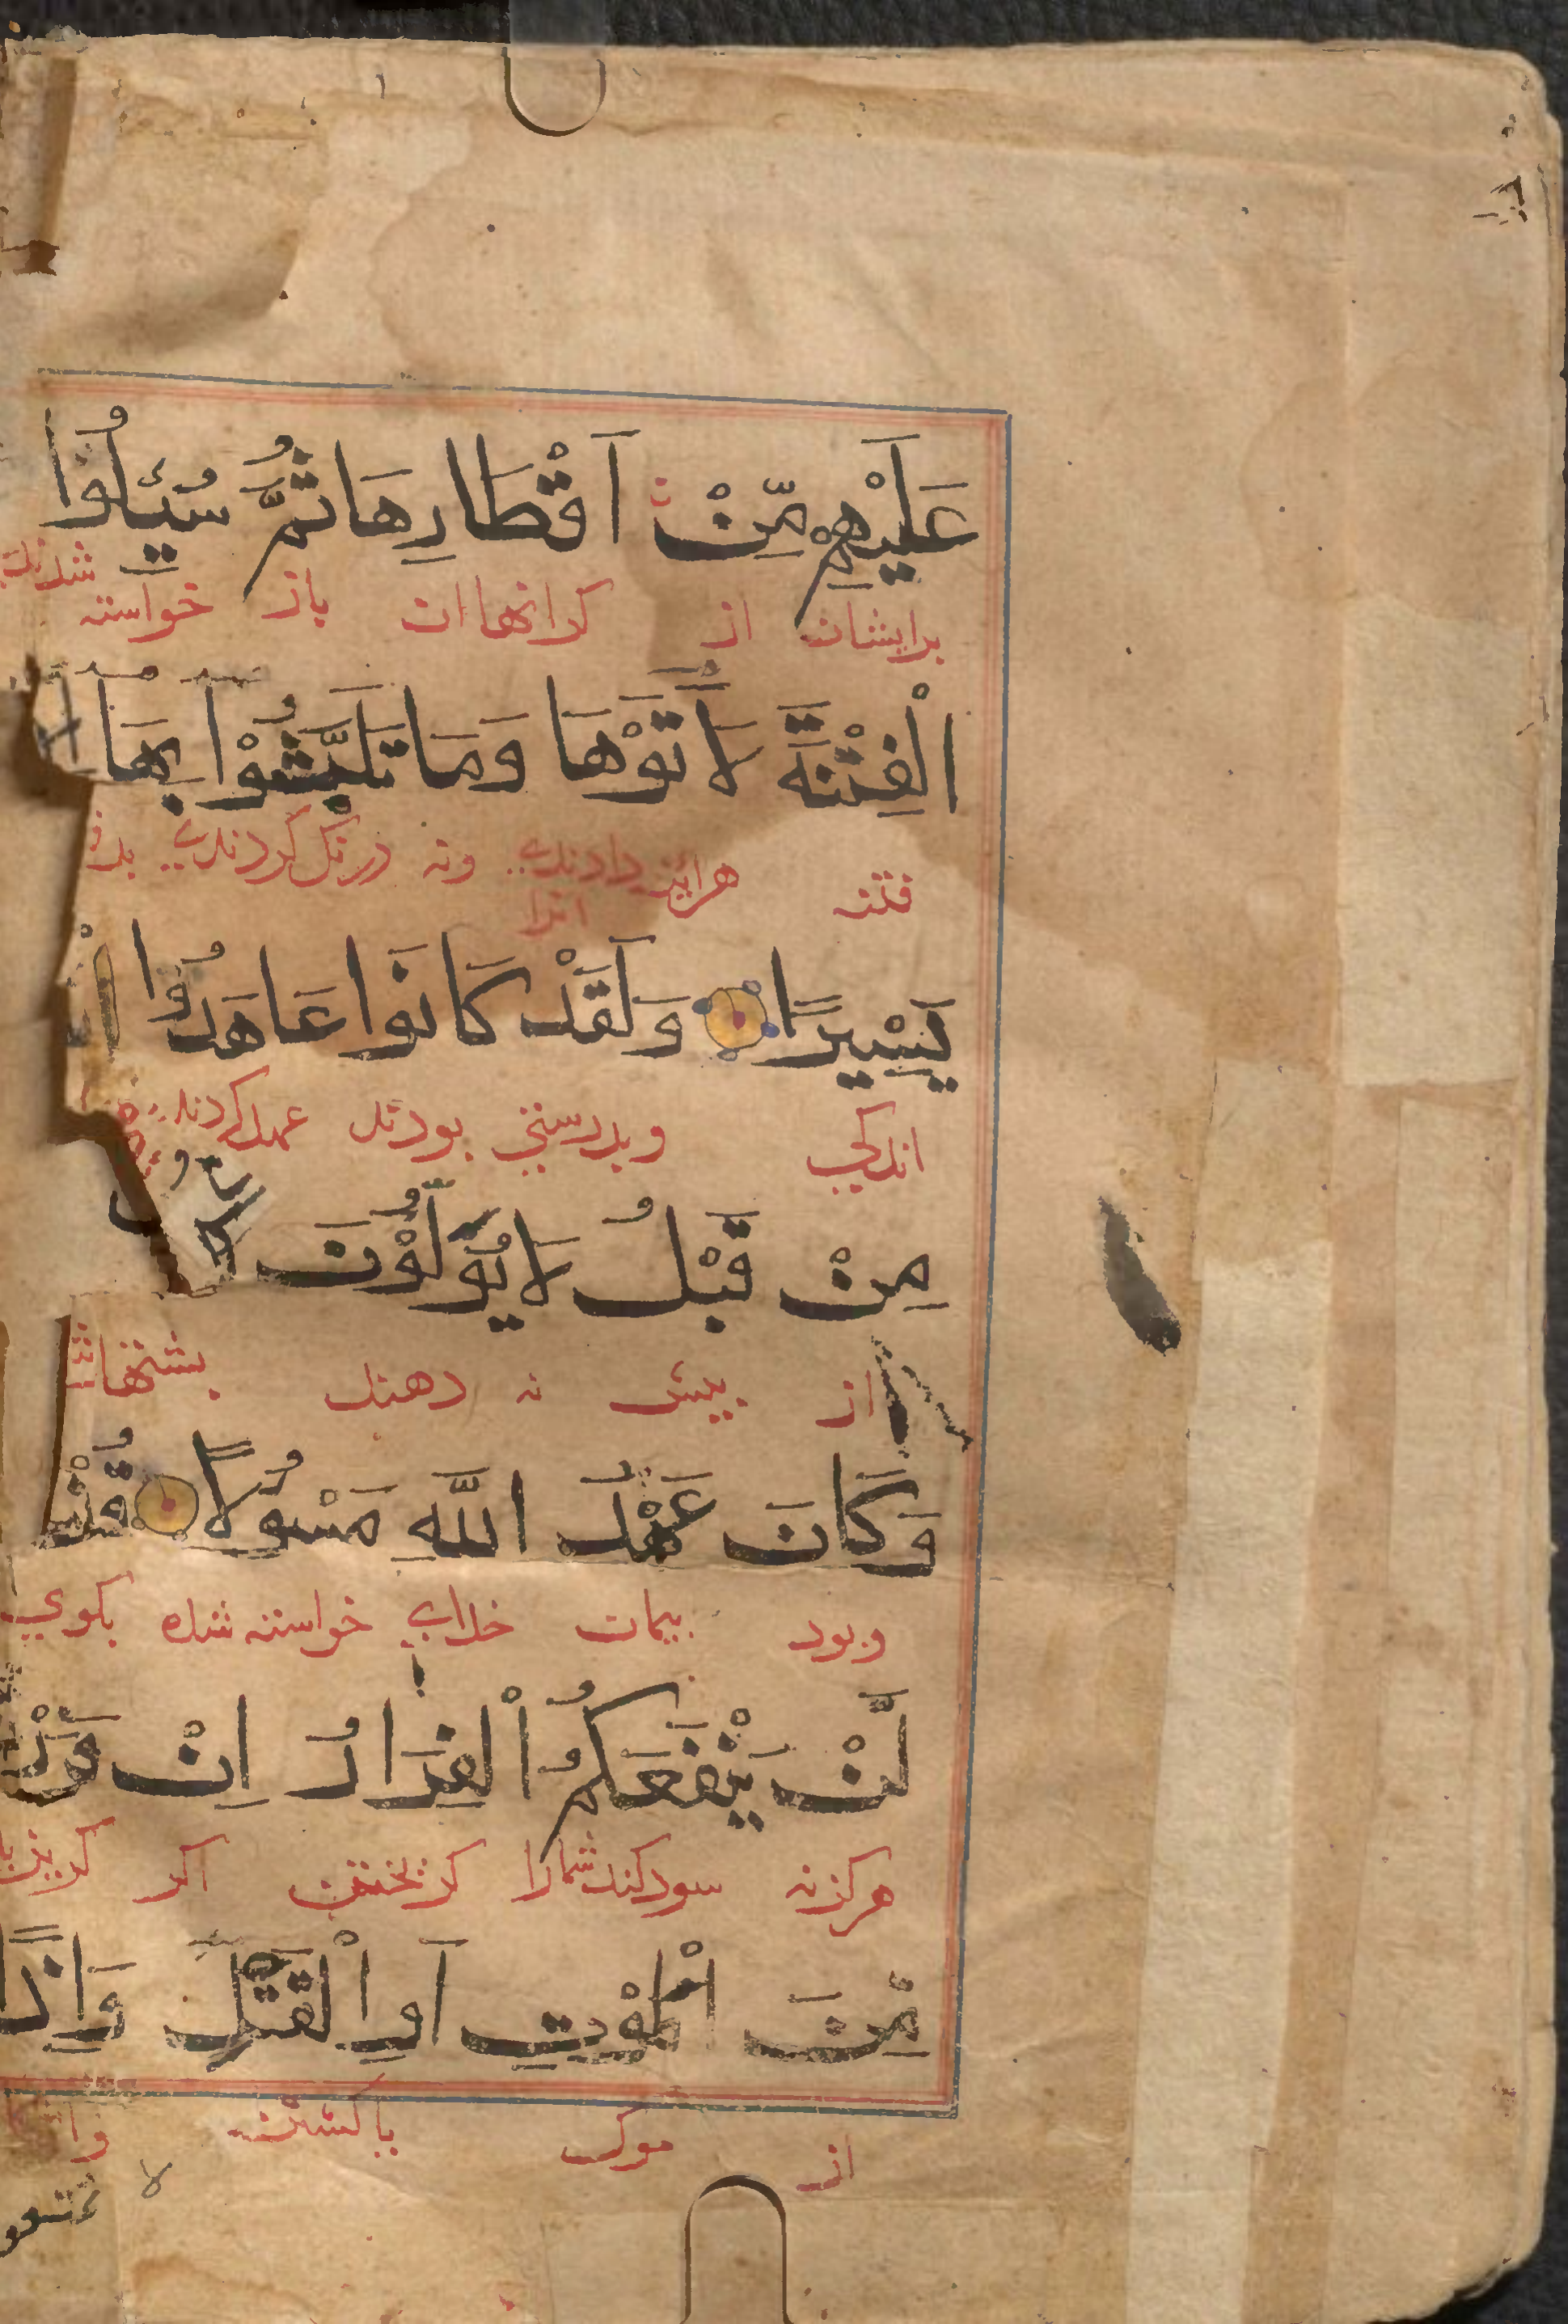 عَلَيْهِمْ مِّنْ اَقْطَارِهَا ثُمَّ سُئِلُوا
برایشان از کرانهاان باز خواسته شدندی
الْفِتْنَةَ لَاٰتَوْهَا وَمَا تَلَبَّثُوْا بِهَا
فتنه هراینه دادندی ونه درنک کردندی بدان
انرا
يَسِيْرًا وَلَقَدْ كَانُوا عَاهَدُوا
اندکی وبدرستی بودند عهد کردند
مِنْ قَبْلُ لَا يُوَلُّوْنَ
از پیش نه دهند پشتهاشان
وَكَانَ عَهْدُ اللّٰهِ مَسْؤُلًا قُلْ
وبود پیمان خدای خواسته شده بکوی
لَّنْ يَّنْفَعَكُمُ الْفِرَارُ اِنْ فَرَرْتُمْ
هرکزنه سود کند شمارا کریختن اکر کریزید
مِّنَ الْمَوْتِ اَوِ الْقَتْلِ وَاِذًا
از مرک یا کشتن وانکاه
لا تمتعو